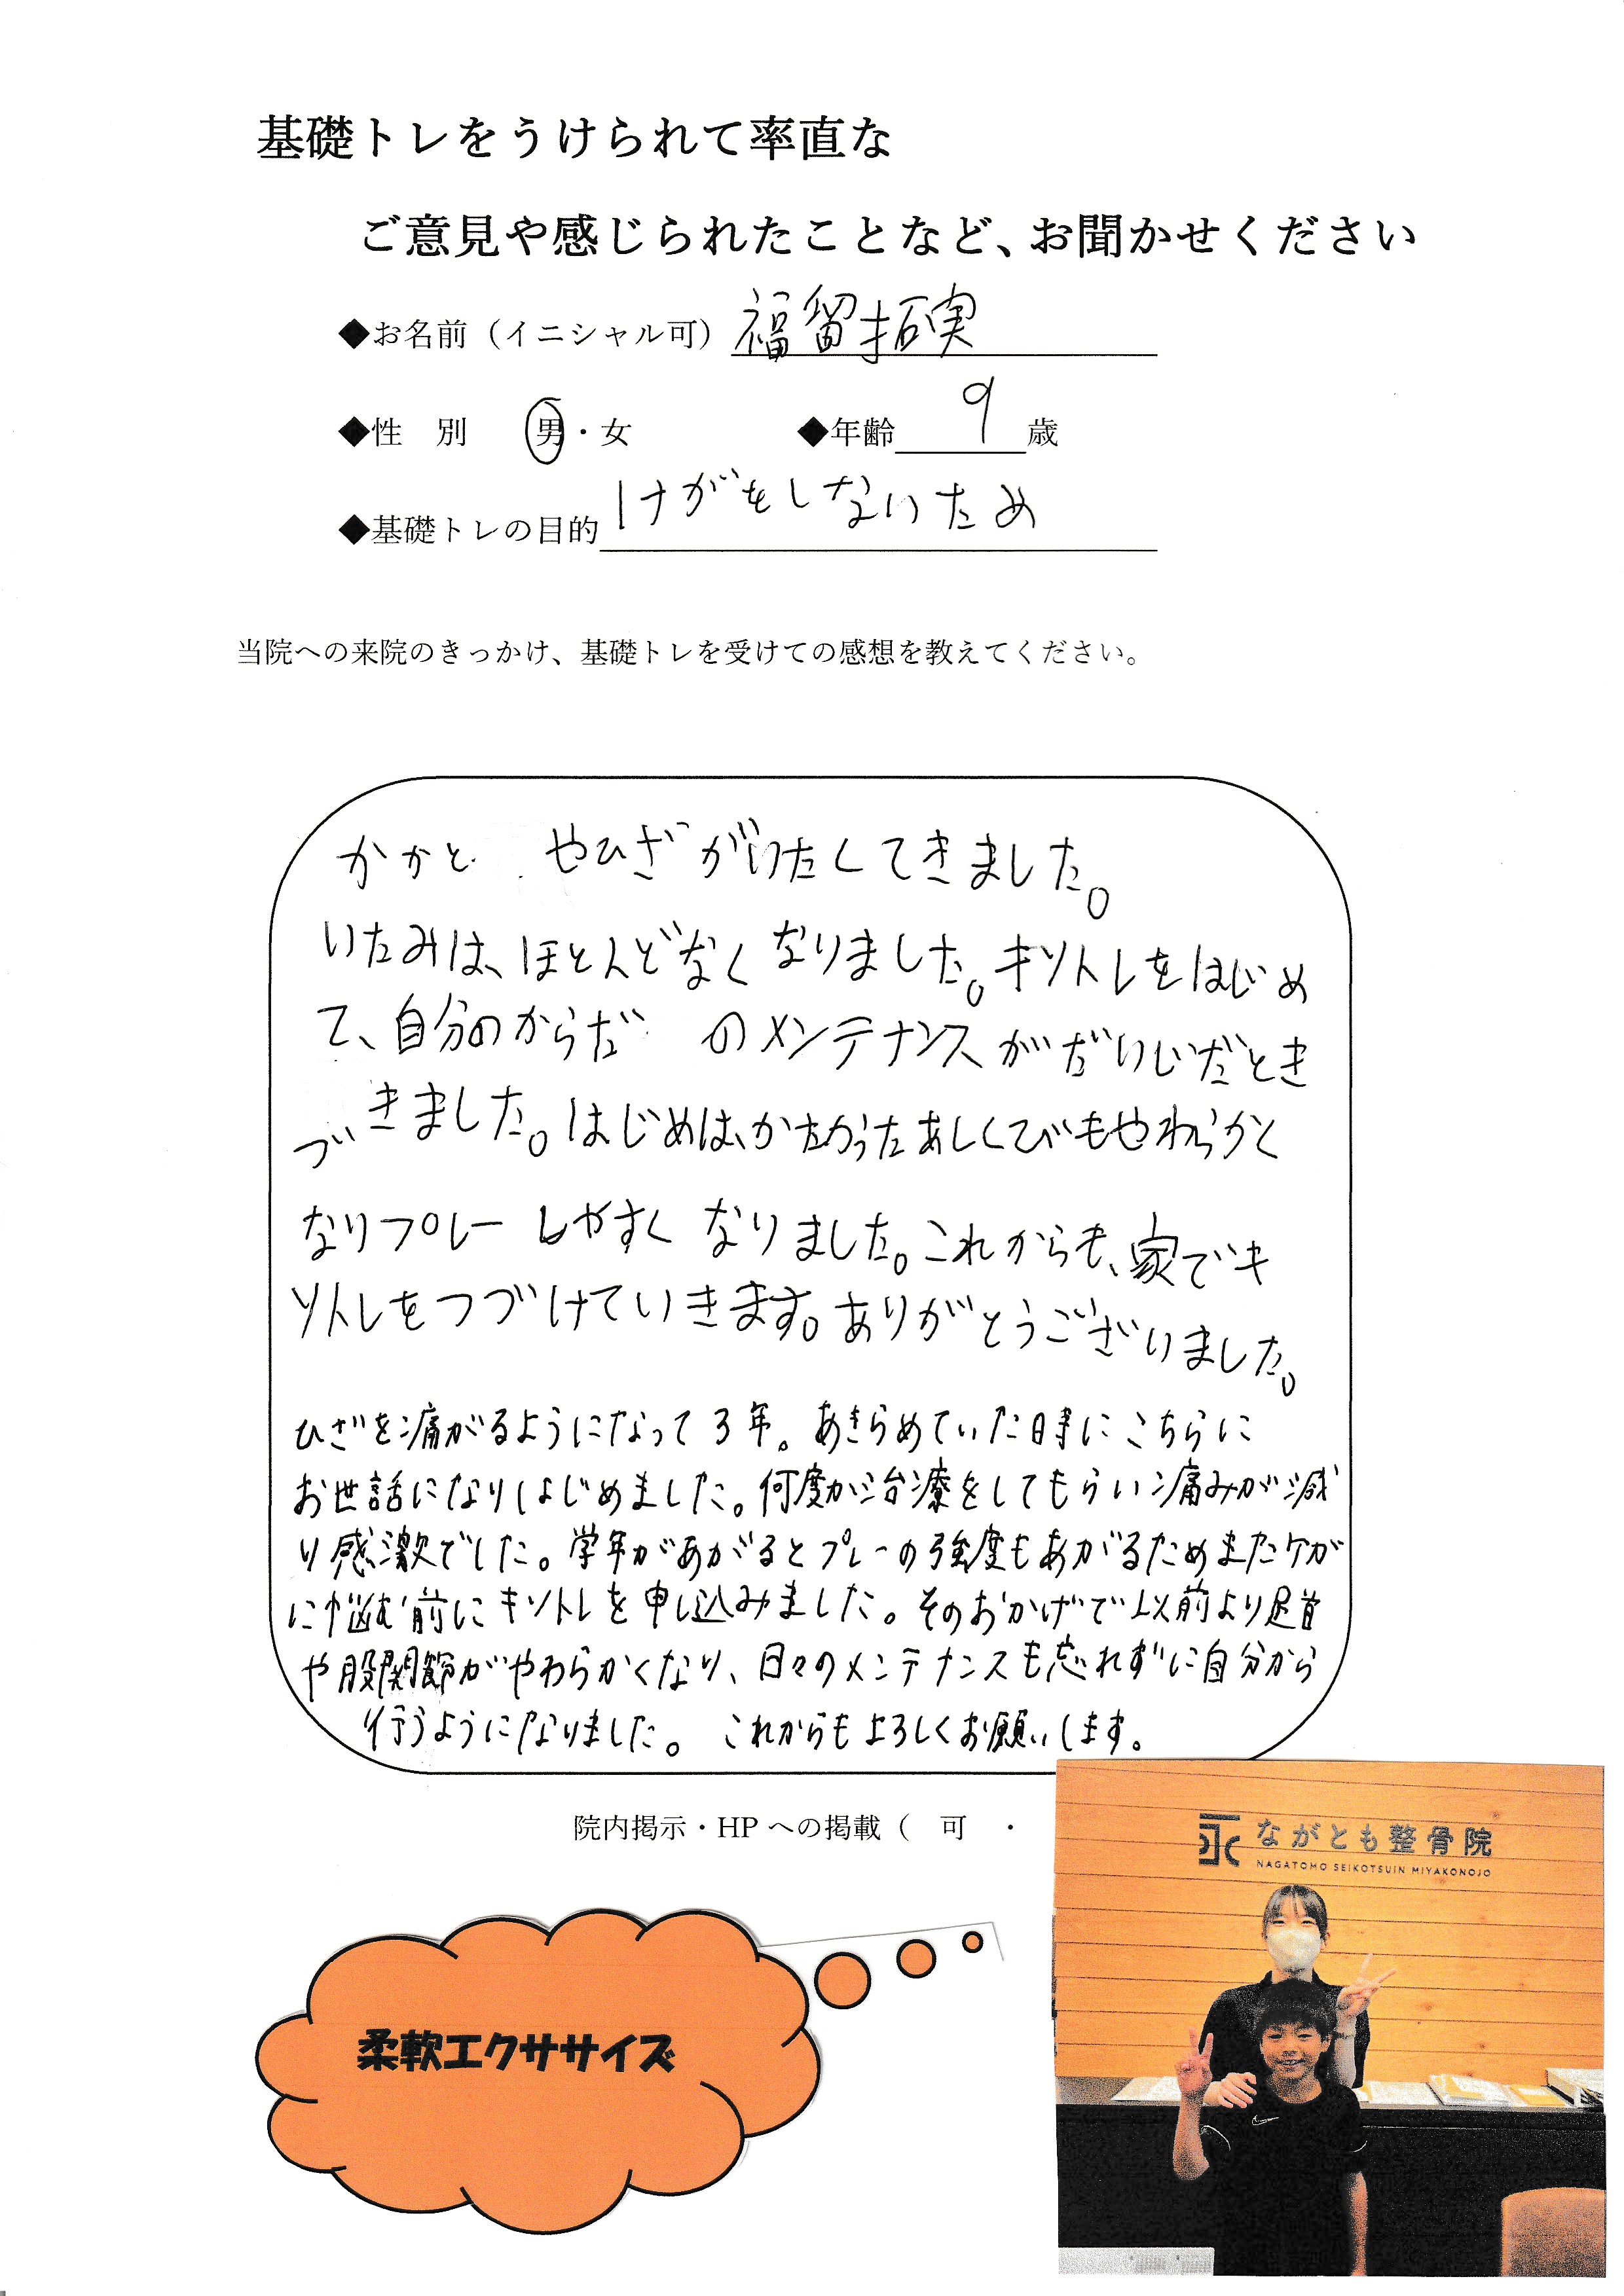 基礎トレをうけられて率直な
ご意見や感じられたことなど、お聞かせください
◆お名前（イニシャル可） 福留拓実
◆性　別　男・女　◆年齢 9 歳
◆基礎トレの目的 けがをしないため
当院への来院のきっかけ、基礎トレを受けての感想を教えてください。
かかと やひざがいたくてきました。
いたみは、ほとんどなくなりました。キソトレをはじめ
て、自分のからだ のメンテナンスがだいじだとき
づきました。はじめは、かたかったあしくびもやわらかく
なりプレーしやすくなりました。これからも、家でキ
ソトレをつづけていきます。ありがとうございました。
ひざを痛がるようになって3年。あきらめていた時にこちらに
お世話になりはじめました。何度か治療をしてもらい痛みが減
り感激でした。学年があがるとプレーの強度もあがるためまたケガ
に悩む前にキソトレを申し込みました。そのおかげで以前より足首
や股関節がやわらかくなり、日々のメンテナンスも忘れずに自分から
行うようになりました。 これからもよろしくお願いします。
院内掲示・HPへの掲載（　可　・
ながとも整骨院
NAGATOMO SEIKOTSUIN MIYAKONOJO
柔軟エクササイズ